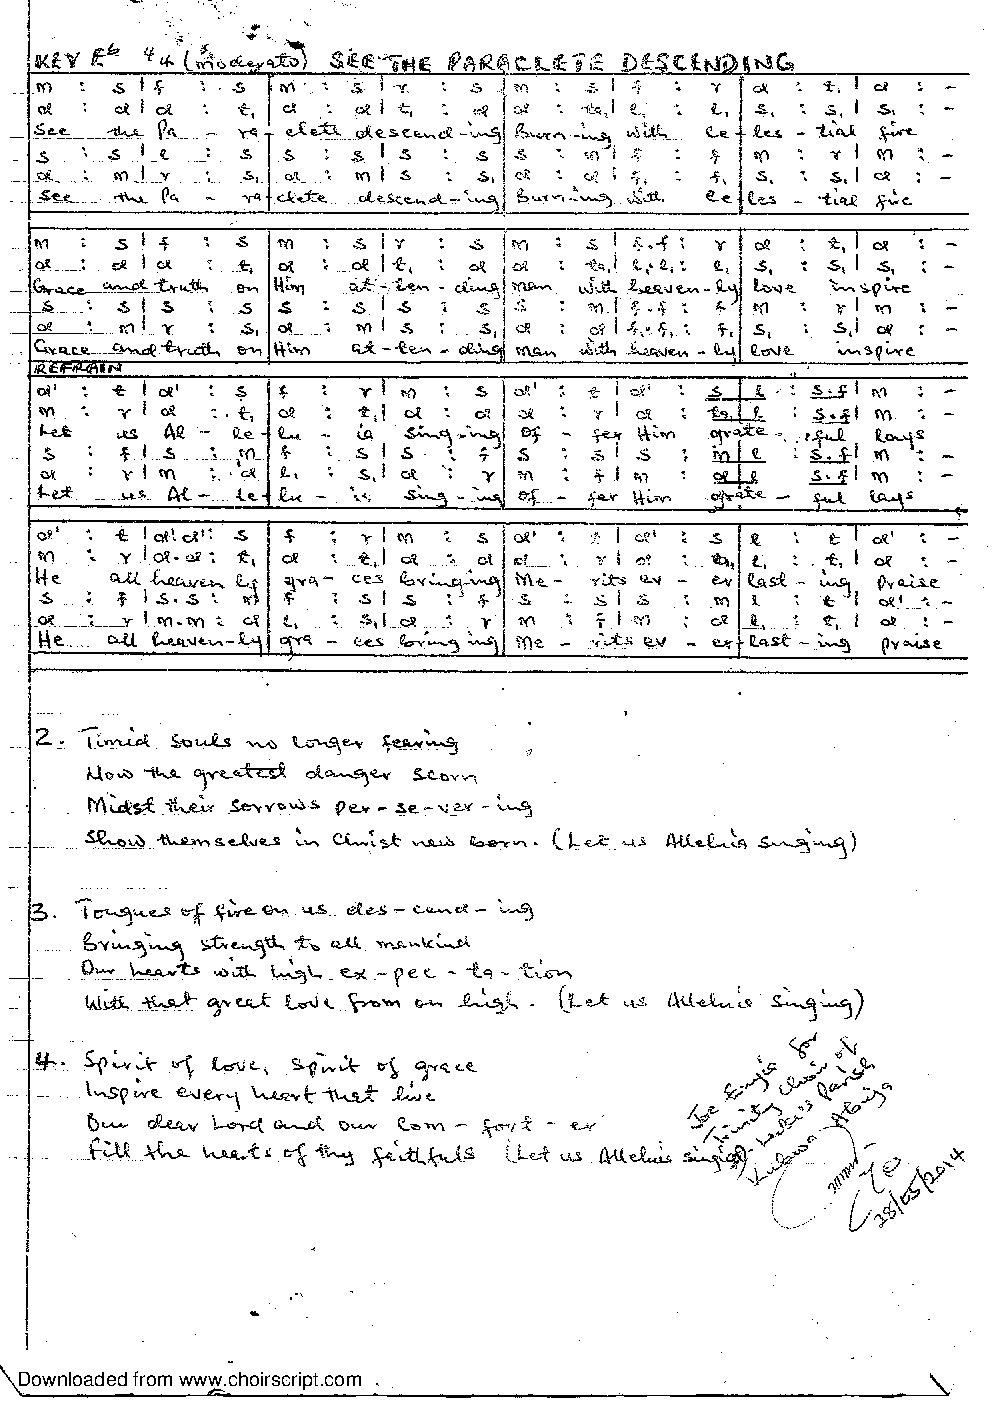 KEY Eb 4/4 (moderato) SEE THE PARACLETE DESCENDING
m : s | f : s | m : s | r : s | m : s | f : r | d : t, | d : -
d : d | d : t, | d : d | t, : d | d : ta, | l, : l, | s, : s, | s, : -
See the Pa - ra - clete descend-ing Burn-ing with ce - les - tial fire
s : s | l : s | s : s | s : s | s : m | f : f | m : r | m : -
d : m | r : s, | d : m | s : s, | d : d | f, : f, | s, : s, | d : -
See the Pa - ra - clete descend-ing Burn-ing with ce - les - tial fire
m : s | f : s | m : s | r : s | m : s | f.f : r | d : t, | d : -
d : d | d : t, | d : d | t, : d | d : ta, | l,.l, : l, | s, : s, | s, : -
Grace and truth on Him at-ten-ding men with heaven-ly love inspire
s : s | s : s | s : s | s : s | s : m | f.f : f | m : r | m : -
d : m | r : s, | d : m | s : s, | d : d | f,.f, : f, | s, : s, | d : -
Grace and truth on Him at-ten-ding men with heaven-ly love inspire
REFRAIN
d' : t | d' : s | f : r | m : s | d' : t | d' : s | l : s.f | m : -
m : r | d : t, | d : t, | d : d | d : r | d : ta, | l : s.f | m : -
Let us Al - le - lu - ia sing-ing Of - fer Him grate - ful lays
s : f | s : m | f : s | s : f | s : s | s : m | l : s.f | m : -
d : r | m : d | l, : s, | d : r | m : f | m : d | l : s.f | m : -
Let us Al - le - lu - ia sing-ing Of - fer Him grate - ful lays
d' : t | d'.d' : s | f : r | m : s | d' : t | d' : s | l : t | d' : -
m : r | d.d : t, | d : t, | d : d | d : r | d : ta, | l, : t, | d : -
He all heaven ly gra - ces bringing Me - rits ev - er last - ing praise
s : f | s.s : m | f : s | s : f | s : s | s : m | l : t | d' : -
d : r | m.m : d | l, : s, | d : r | m : f | m : d | l, : t, | d : -
He all heaven-ly gra - ces bringing Me - rits ev - er last - ing praise
2. Timid souls no longer fearing
Now the greatest danger scorn
Midst their sorrows per-se-ver-ing
Show themselves in Christ new born. (Let us Alleluia singing)
3. Tongues of fire on us des-cend-ing
Bringing strength to all mankind
Our hearts with high ex-pec-ta-tion
With that great love from on high. (Let us Alleluia singing)
4. Spirit of love, Spirit of grace
Inspire every heart that live
Our dear Lord and our Com-fort-er
Fill the hearts of thy faithfuls (Let us Alleluia singing)
Joe for
Trinity Choir of
St. Luke's Parish
Kubwa Abuja
28/05/2014
Downloaded from www.choirscript.com